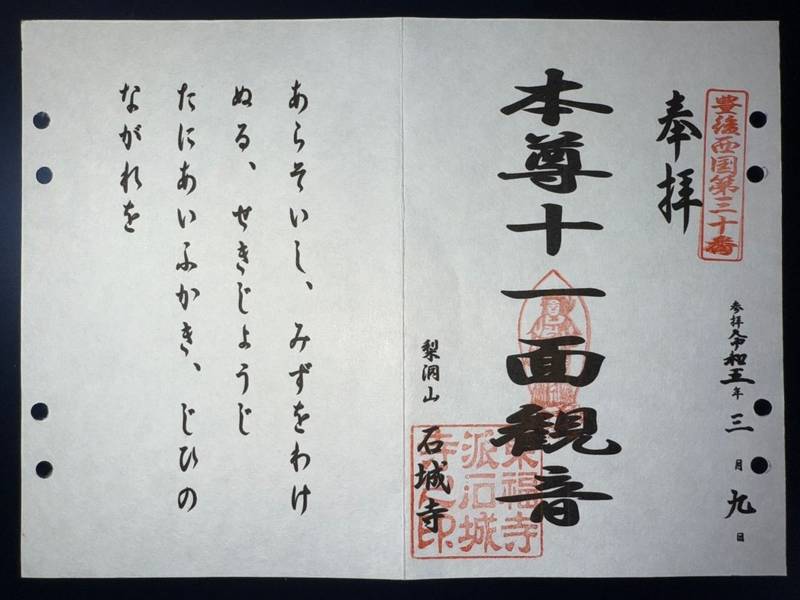 豊後西国第三十番
奉拝
参拝入令和五年三月九日
本尊十一面観音
梨洞山 石城寺
東福寺
派石城
寺之印
あらそいし、みずをわけ
ぬる、せきじょうじ
たにあいふかき、じひの
ながれを